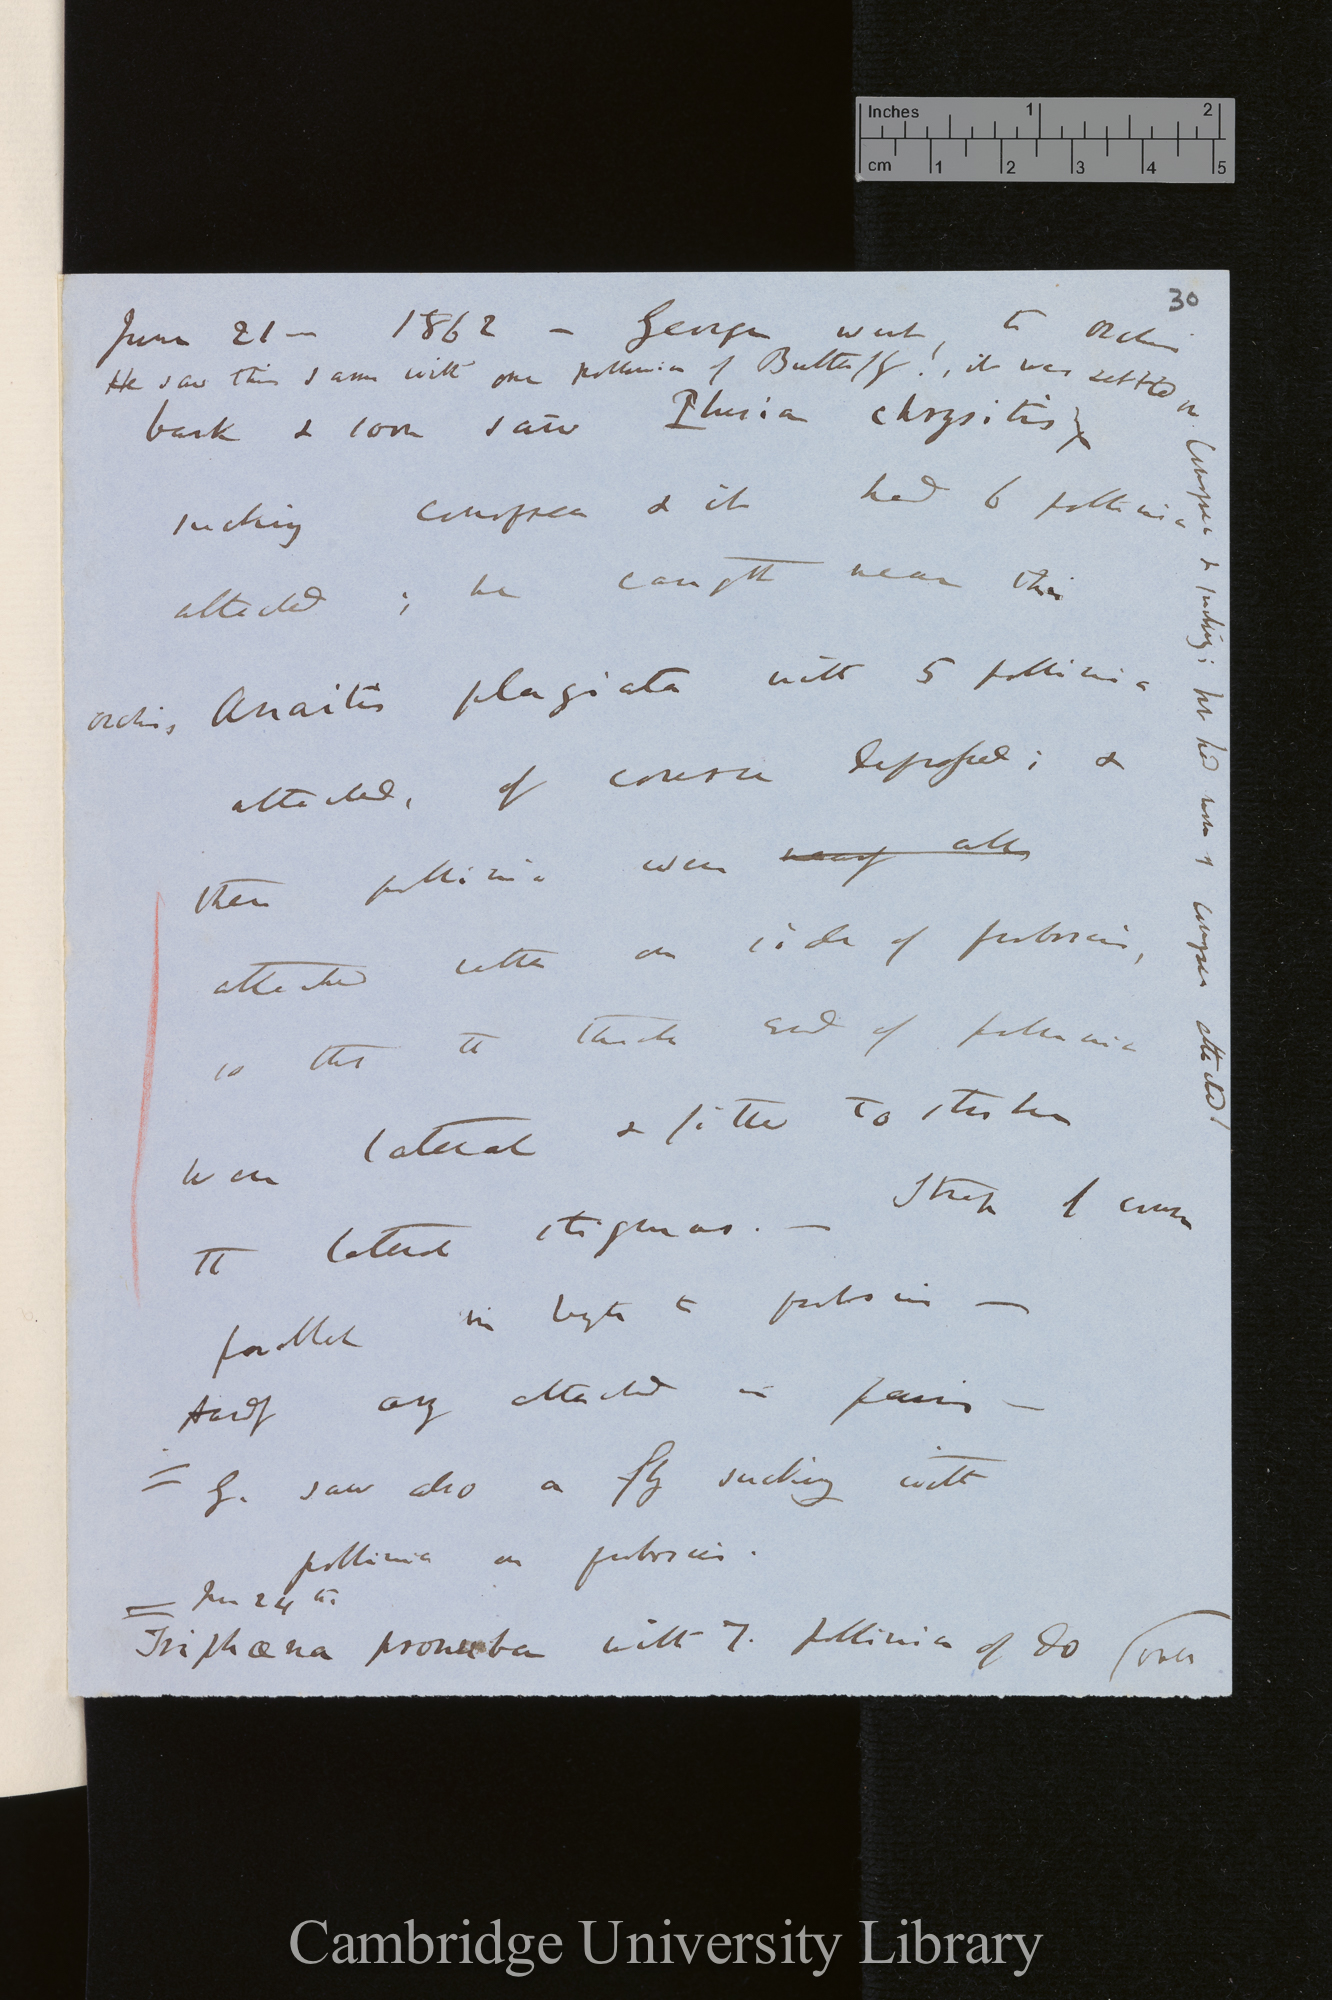 30
June 21 — 1862 — George went, to Orchis
He saw this same with one pollinia of Butterfly!, it was settled on
bank & soon saw Plusia chrysitis
sucking conopsea & it had 6 pollinia
attached; he caught near this
orchis, Anaitis plagiata with 5 pollinia
attached, of course depressed; &
these pollinia were
attached rather on side of proboscis,
so that the thick end of pollinia
were lateral & fitted to strike
the lateral stigmas. —
parallel in length to proboscis —
Hardly any attached in pairs —
G. saw also a fly sucking with
pollinia on proboscis.
June 24th.
Triphæna pronuba with 7. pollinia of do (over
Conopsea & sucking; but had none of conopsea attached!
Inches 1 2
cm 1 2 3 4 5
Cambridge University Library